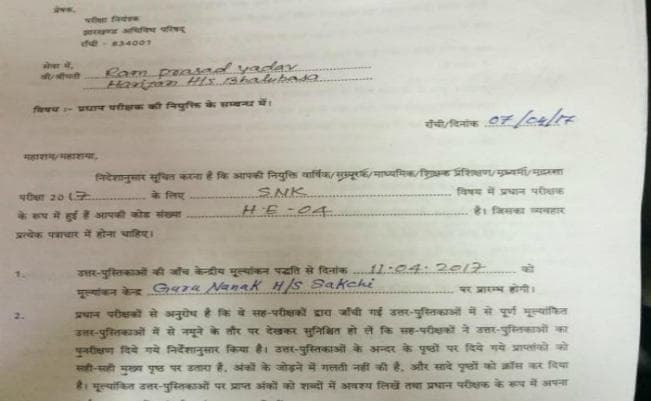 प्रेषक,
परीक्षा नियंत्रक
झारखण्ड अधिविध परिषद्
राँची - 834001
सेवा में,
श्री/श्रीमती Ram prasad yadav
Harijan H/S Bhalubasa
विषय :- प्रधान परीक्षक की नियुक्ति के सम्बन्ध में।
राँची/दिनांक 07/04/17
महाशय/महाशया,
निदेशानुसार सूचित करना है कि आपकी नियुक्ति वार्षिक/सम्पूरक/माध्यमिक/शिक्षक प्रशिक्षण/मध्यमा/मदरसा
परीक्षा 2017 के लिए SNK विषय में प्रधान परीक्षक
के रूप में हुई है आपकी कोड संख्या H-E-04 है। जिसका व्यवहार
प्रत्येक पत्राचार में होना चाहिए।
1. उत्तर-पुस्तिकाओं की जाँच केन्द्रीय मूल्यांकन पद्धति से दिनांक 11.04.2017 को
मूल्यांकन केन्द्र Guru Nanak H/S Sakchi पर प्रारम्भ होगी।
2. प्रधान परीक्षकों से अनुरोध है कि वे सह-परीक्षकों द्वारा जाँची गई उत्तर-पुस्तिकाओं में से पूर्ण मूल्यांकित
उत्तर-पुस्तिकाओं में से नमूने के तौर पर देखकर सुनिश्चित हो लें कि सह-परीक्षकों ने उत्तर-पुस्तिकाओं का
पुनरीक्षण दिये गये निर्देशानुसार किया है। उत्तर-पुस्तिकाओं के अन्दर के पृष्ठों पर दिये गये प्राप्तांकों को
सही-सही मुख्य पृष्ठ पर उतारा है, अंकों के जोड़ने में गलती नहीं की है, और सादे पृष्ठों को क्रॉस कर दिया
है। मूल्यांकित उत्तर-पुस्तिकाओं पर प्राप्त अंकों को शब्दों में अवश्य लिखें तथा प्रधान परीक्षक के रूप में अपना